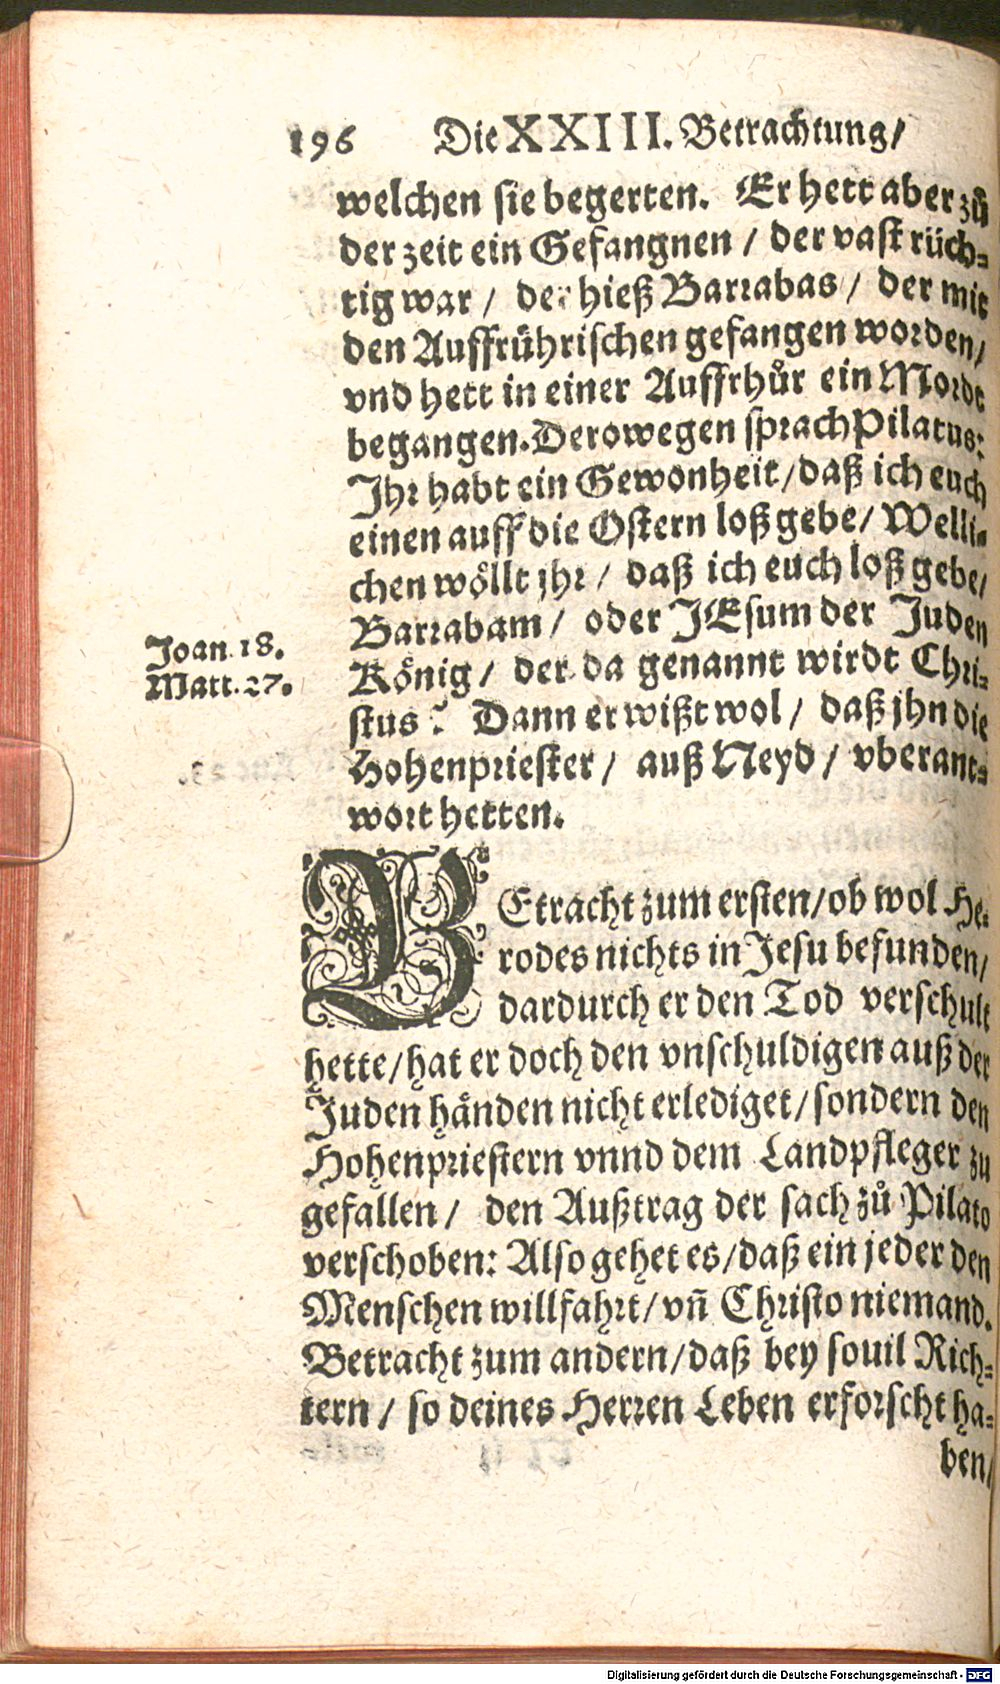 196 Die XXIII. Betrachtung/
welchen sie begerten. Er hett aber zů
der zeit ein Gefangnen / der vast rüch-
tig war / der hieß Barrabas / der mit
den Auffrührischen gefangen worden/
vnd hett in einer Auffrhůr ein Mordt
begangen. Derowegen sprach Pilatus:
Ihr habt ein Gewonheit / daß ich euch
einen auff die Ostern loß gebe / Welli-
chen wöllt jhr / daß ich euch loß gebe/
Barrabam / oder JEsum der Juden
Joan. 18.
König / der da genannt wirdt Chri-
Matt. 27.
stus? Dann er wißt wol / daß jhn die
Hohenpriester / auß Neyd / vberant-
wort hetten.
BEtracht zum ersten / ob wol He-
rodes nichts in Jesu befunden/
dardurch er den Tod verschult
hette / hat er doch den vnschuldigen auß der
Juden händen nicht erlediget / sondern den
Hohenpriestern vnnd dem Landpfleger zu
gefallen / den Außtrag der sach zů Pilato
verschoben: Also gehet es / daß ein jeder den
Menschen willfahrt / vñ Christo niemand.
Betracht zum andern / daß bey souil Rich-
tern / so deines Herren Leben erforscht ha-
ben/
Digitalisierung gefördert durch die Deutsche Forschungsgemeinschaft - DFG